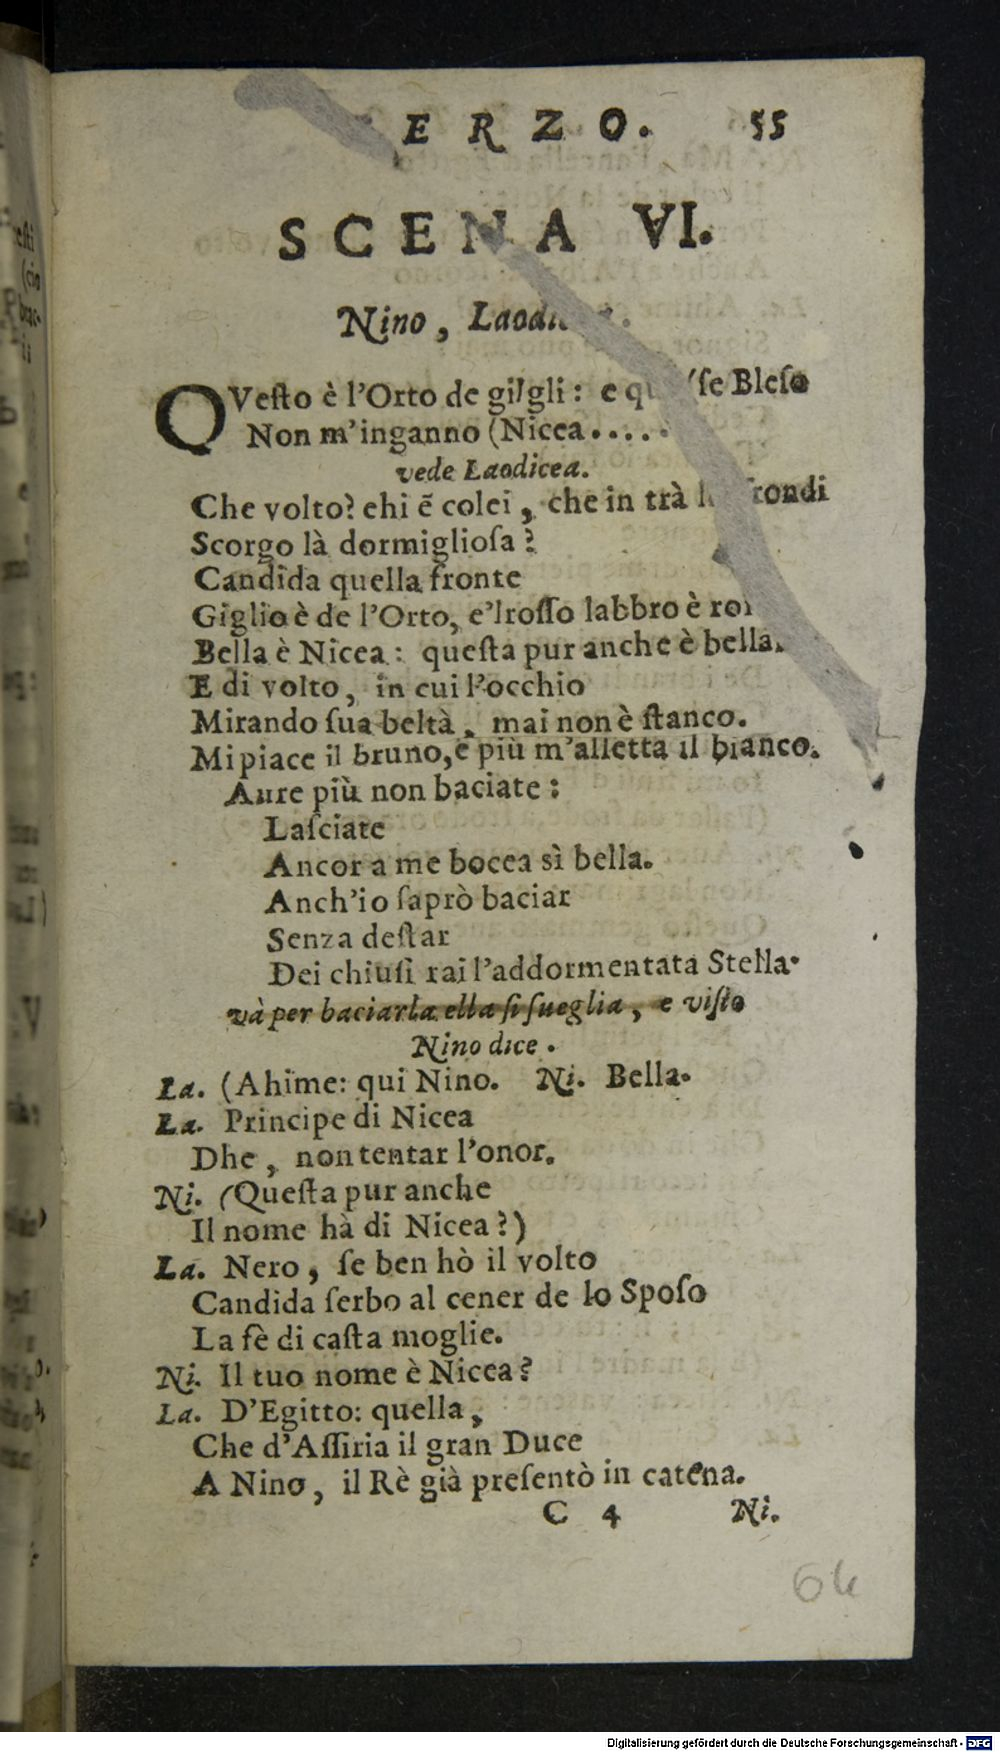 ERZO. 55
SCENA VI.
Nino,
QVeſto è l'Orto de gilgli: e ſe Bleſo
Non m'inganno (Nicea.....
vede Laodicea.
Che volto? ehi ẽ colei, che in trà
Scorgo là dormiglioſa?
Candida quella fronte
Giglio è de l'Orto, e'lroſſo labbro è
Bella è Nicea: queſta pur anche è bella.
E di volto, in cui l'occhio
Mirando ſua beltà, mai non è ſtanco.
Mi piace il bruno, e più m'alletta il bianco.
Aure più non baciate:
Laſciate
Ancor a me bocea sì bella.
Anch'io ſaprò baciar
Senza deſtar
Dei chiuſi rai l'addormentata Stella.
và per baciarla ella ſi ſueglia, e viſto
Nino dice.
La. (Ahime: qui Nino. Ni. Bella.
La. Principe di Nicea
Dhe, non tentar l'onor.
Ni. (Queſta pur anche
Il nome hà di Nicea?)
La. Nero, ſe ben hò il volto
Candida ſerbo al cener de lo Spoſo
La fè di caſta moglie.
Ni. Il tuo nome è Nicea?
La. D'Egitto: quella,
Che d'Aſſiria il gran Duce
A Nino, il Rè già preſentò in catena.
C 4 Ni.
64
Digitalisierung gefördert durch die Deutsche Forschungsgemeinschaft - DFG